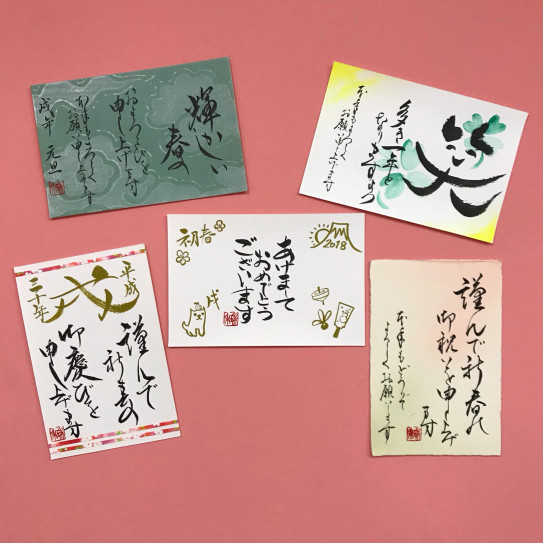 輝かしい
春の
およろこびを
申し上げます
本年もよろしく
お願い申します
戌年 元旦
笑
多き一年と
なりますよう
本年もよろしく
お願い致します
初春
2018
あけまして
おめでとう
ございます
戌
平成
三十年
戌
謹んで
新春の
御慶びを
申し上げます
謹んで新春の
御祝いを申し上げ
ます
本年もどうぞ
よろしくお願いします